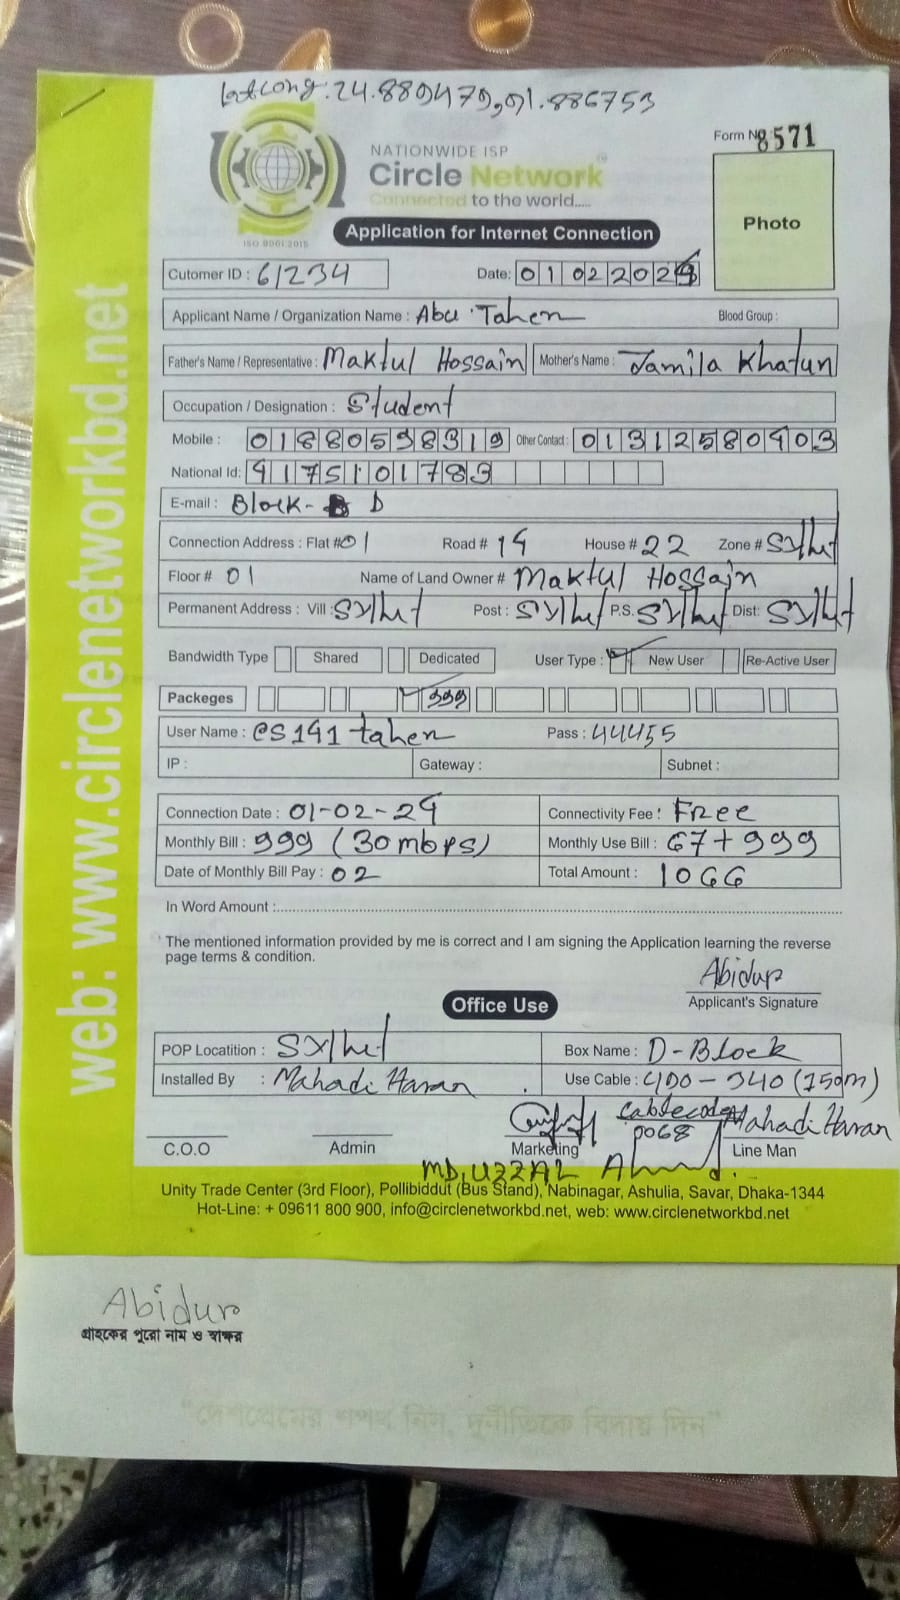 Lat Long: 24.889479, 91.886753
Form No 8571
NATIONWIDE ISP
Circle Network
Connected to the world.....
ISO 9001:2015
Photo
Application for Internet Connection
Cutomer ID : 61234 Date: 01022024
Applicant Name / Organization Name : Abu Taher Blood Group :
Father's Name / Representative : Maktul Hossain Mother's Name : Jamila Khatun
Occupation / Designation : Student
Mobile : 01880598319 Other Contact : 01312580403
National Id: 4175101783
E-mail : Block- D
Connection Address : Flat # 01 Road # 14 House # 22 Zone # Sylhet
Floor # 01 Name of Land Owner # Maktul Hossain
Permanent Address : Vill : Sylhet Post : Sylhet P.S. Sylhet Dist: Sylhet
Bandwidth Type Shared Dedicated User Type : New User Re-Active User
Packeges 999
User Name : cs141 taher Pass : 44455
IP : Gateway : Subnet :
Connection Date : 01-02-24 Connectivity Fee : Free
Monthly Bill : 999 (30 mbps) Monthly Use Bill : 67+999
Date of Monthly Bill Pay : 02 Total Amount : 1066
In Word Amount :
The mentioned information provided by me is correct and I am signing the Application learning the reverse
page terms & condition.
Abidur
Applicant's Signature
Office Use
POP Locatition : Sylhet Box Name : D-Block
Installed By : Mahadi Hasan Use Cable : 490-340 (150m)
Cablecode 0068 Mahadi Hasan
C.O.O Admin Marketing Line Man
MD, UZZAL Ahmed.
Unity Trade Center (3rd Floor), Pollibiddut (Bus Stand), Nabinagar, Ashulia, Savar, Dhaka-1344
Hot-Line: + 09611 800 900, info@circlenetworkbd.net, web: www.circlenetworkbd.net
web: www.circlenetworkbd.net
Abidur
গ্রাহকের পুরো নাম ও স্বাক্ষর
"দেশপ্রেমের শপথ নিন, দুর্নীতিকে বিদায় দিন"